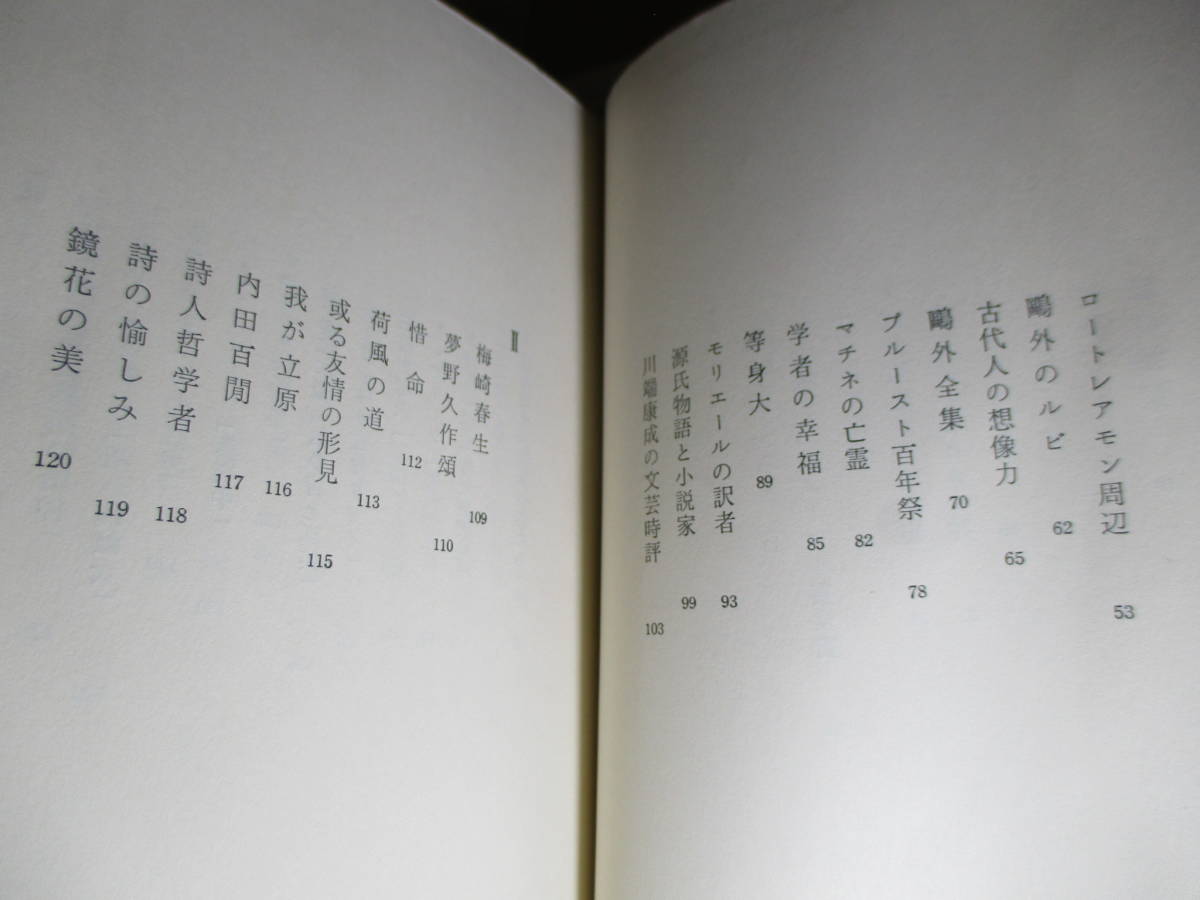 ロートレアモン周辺 53
鷗外のルビ 62
古代人の想像力 65
鷗外全集 70
プルースト百年祭 78
マチネの亡霊 82
学者の幸福 85
等身大 89
モリエールの訳者 93
源氏物語と小説家 99
川端康成の文芸時評 103
Ⅱ
梅崎春生 109
夢野久作頌 110
惜命 112
荷風の道 113
或る友情の形見 115
我が立原 116
内田百閒 117
詩人哲学者 118
詩の愉しみ 119
鏡花の美 120